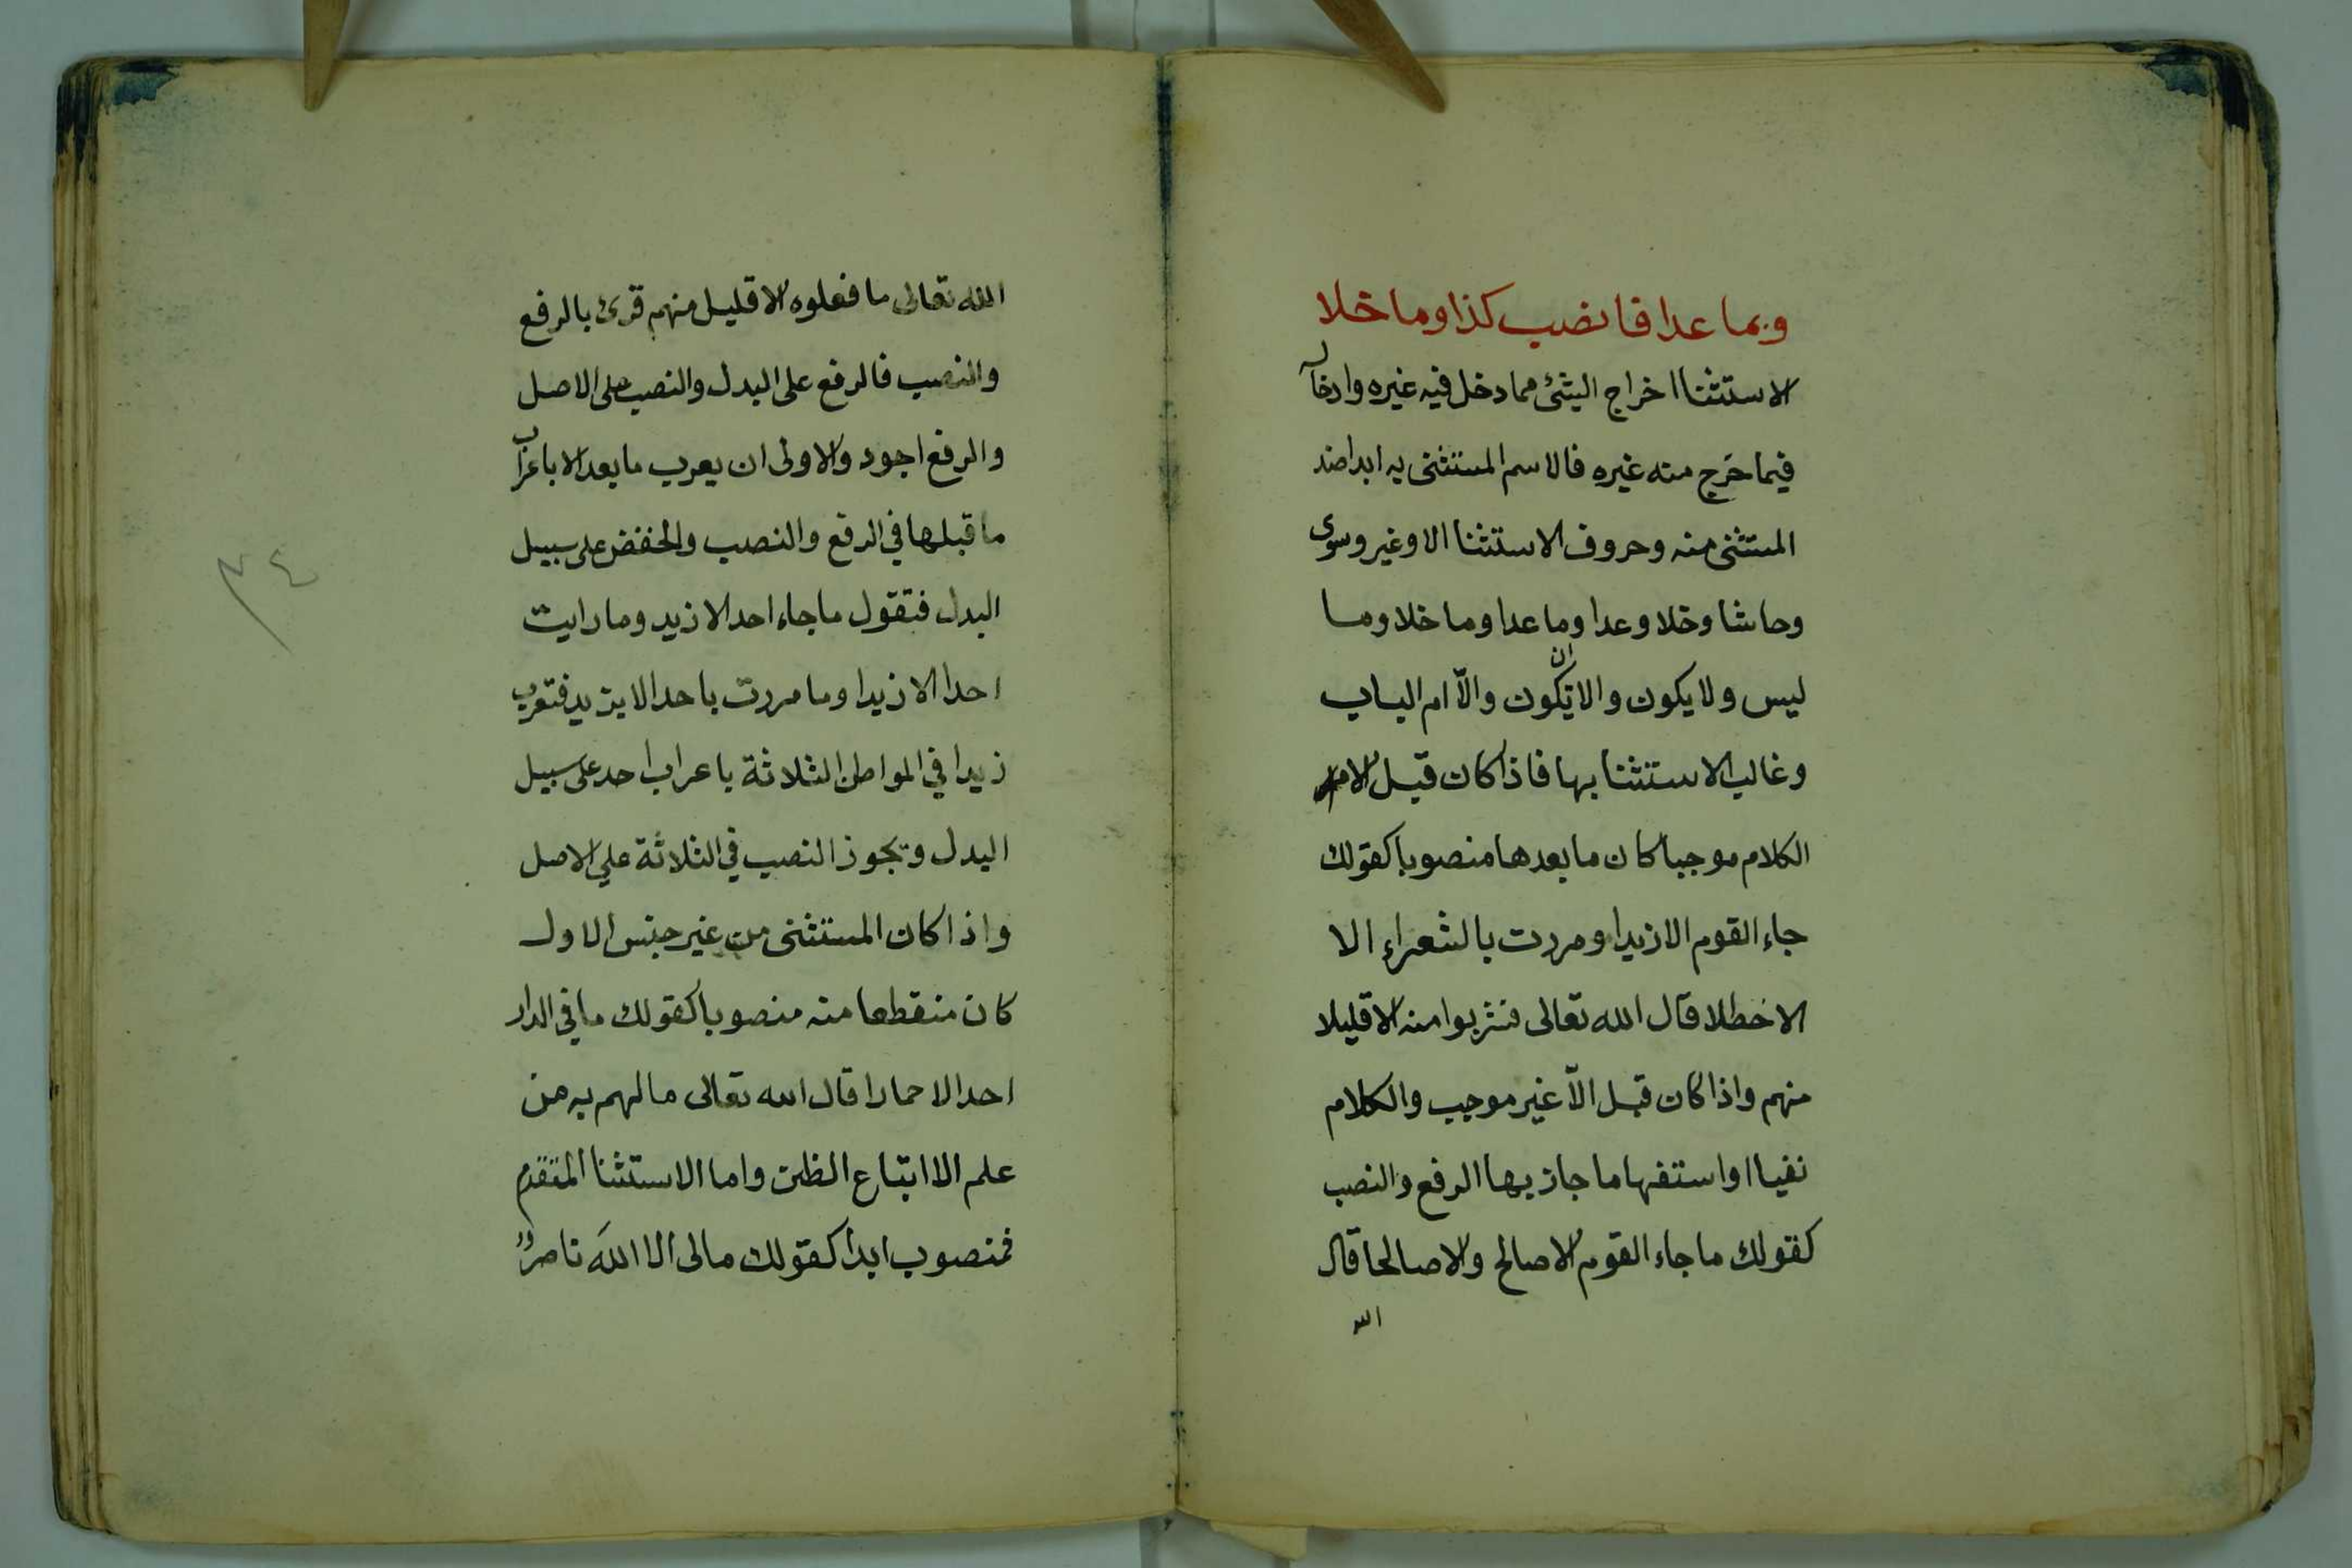 وبما عدا فانصب كذا وما خلا
الاستثنا اخراج الشئ مما دخل فيه غيره وادخال
فيما خرج منه غيره فالاسم المستثنى به ابدا ضد
المستثنى منه وحروف الاستثنا الا وغير وسوى
وحاشا وخلا وعدا وما عدا وما خلا وما
ليس ولا يكون والا ان تكون والّا ام الباب
وغالب الاستثنا بها فاذا كان قبل الا
الكلام موجبا كان ما بعدها منصوبا كقولك
جاء القوم الا زيدا ومررت بالشعراء الا
الاخطلا قال الله تعالى فشربوا منه الا قليلا
منهم واذا كان قبل الّا غير موجب والكلام
نفيا او استفهاما جاز بها الرفع والنصب
كقولك ما جاء القوم الا صالح والا صالحا قال
الله
الله تعالى ما فعلوه الا قليل منهم قرئ بالرفع
والنصب فالرفع على البدل والنصب على الاصل
والرفع اجود والاولى ان يعرب ما بعد الا باعراب
ما قبلها في الرفع والنصب والخفض على سبيل
البدل فتقول ما جاء احد الا زيد وما رايت
احدا الا زيدا وما مررت باحد الا بزيد فتعرب
زيدا في المواطن الثلاثة باعراب احد على سبيل
البدل ويجوز النصب في الثلاثة علي الاصل
واذا كان المستثنى من غير جنس الاول
كان منقطعا منه منصوبا كقولك ما في الدار
احد الا حمارا قال الله تعالى ما لهم به من
علم الا اتباع الظن واما الاستثنا المتقدم
فمنصوب ابدا كقولك مالى الا الله ناصر
٣٤